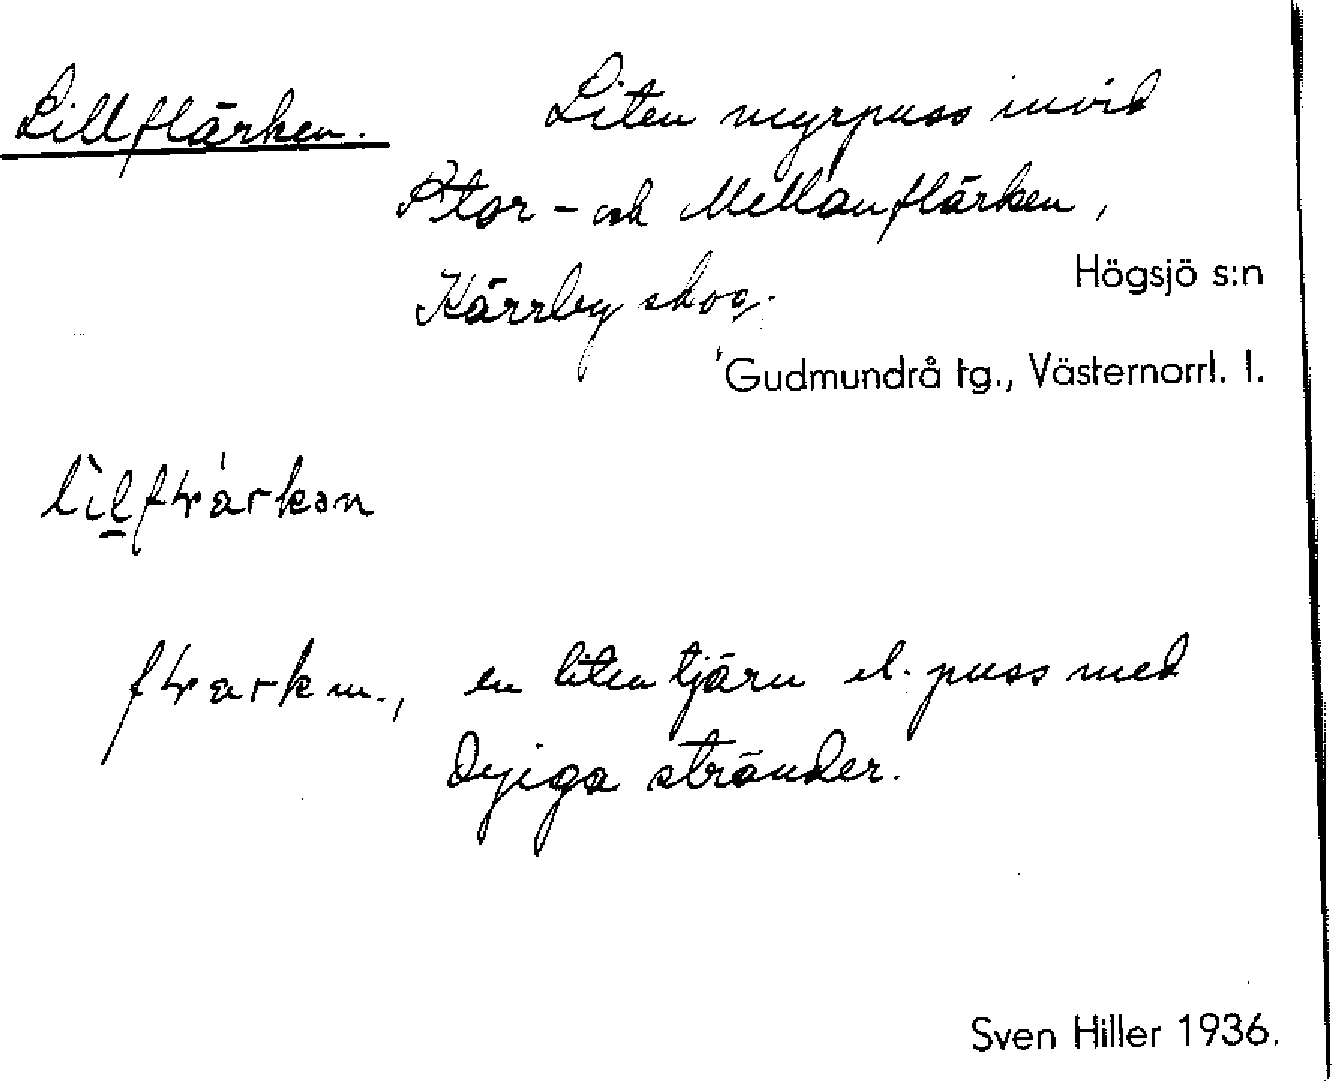 Lillflärken. Liten myrpuss invid
Stor- och Mellanflärken,
Kärrby skog.
Högsjö s:n
Gudmundrå tg., Västernorrl. l.
en liten tjärn el. puss med
dyiga stränder.
Sven Hiller 1936.